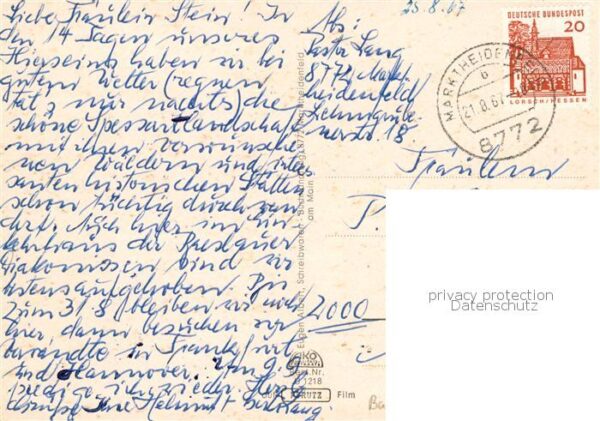 25.8.67
DEUTSCHE BUNDESPOST
20
LORSCH/HESSEN
MARKTHEIDENFELD
b
21.8.67
8772
Liebe Fräulein Stein! In
den 14 Tagen unseres
Hierseins haben wir bei
gutem Wetter (regnen
tat's nur nachts) die
schöne Spessartlandschaft
mit ihren
Wäldern und
santen historischen Stätten
schon tüchtig durchwan
dert. Auch hier im Ein
kehrhaus der Breslauer
Diakonissen sind wir
bestens aufgehoben. Bis
zum 31/8 bleiben wir noch
hier dann besuchen wir
Verwandte in Frankfurt
und Hannover.
predige ich wieder. Herzl
Grüße Ihre Helmut
Abs:
Pastor Lang
8772 Markt
heidenfeld
18
Fräulein
2000
Eugen Albert, Schreibwaren
am Main
privacy protection
Datenschutz
PERUTZ Film